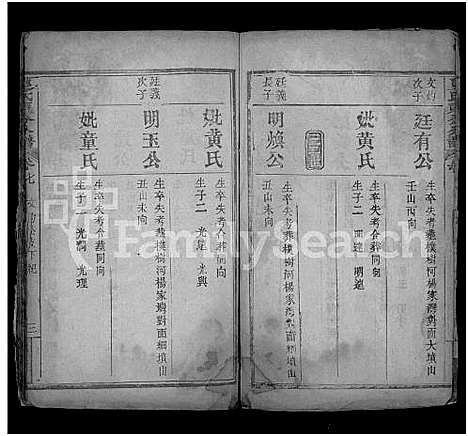 文灼
次子
廷有公
生卒失考葬樸樹河楊家灣對面大墳山
壬山丙向
妣黃氏
生卒失考合葬同向
生子二 明達
廷義
長子
明煥公
生卒失考葬樸樹河楊家灣對面
丑山未向
妣黃氏
生卒失考合葬同向
生子二 光星 光興
廷義
次子
明玉公
生卒失考葬樸樹河楊家灣對面細墳山
丑山未向
妣童氏
生卒失考合葬同向
生子二 光潤 光理
三
FamilySearch